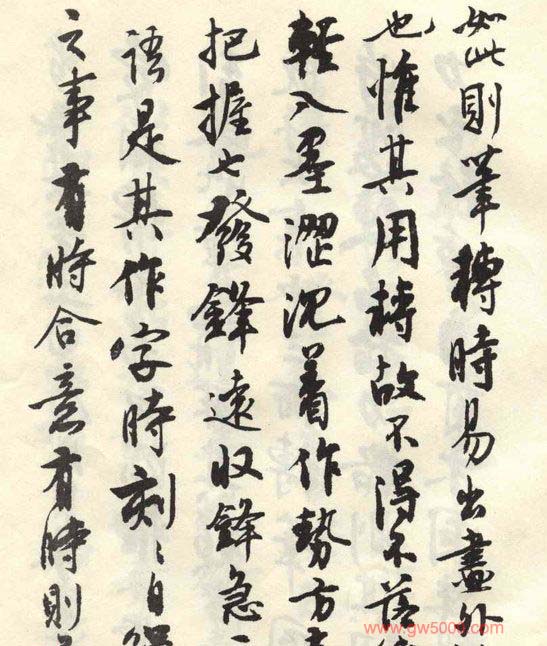 如此則筆轉時易出盡外
也惟其用轉故不得不落
輕入墨澀沉着作勢方
把握七發鋒遠收鋒急
語是其作字時刻〻自
之事有時合意有時則
www.gw5000.com